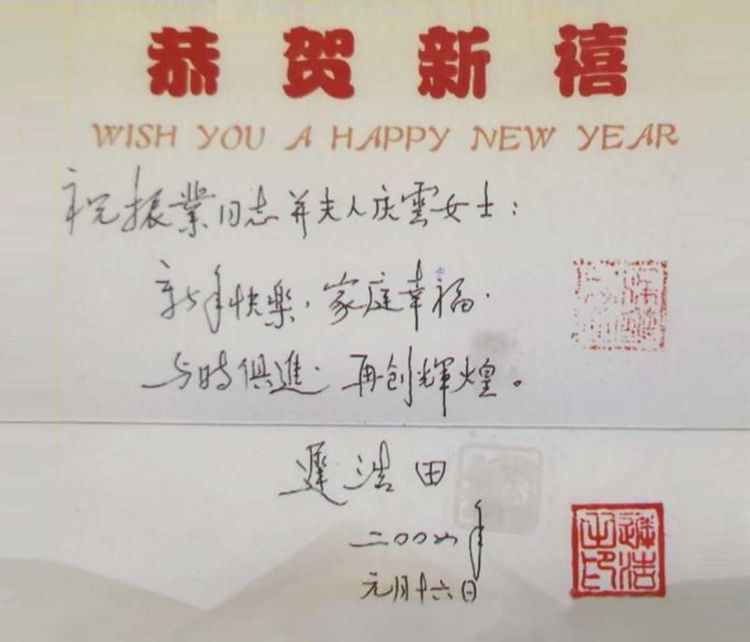 恭贺新禧
WISH YOU A HAPPY NEW YEAR
祝振業同志并夫人庆雲女士：
新年快樂、家庭幸福.
与时俱進. 再创輝煌。
遲浩田
二〇〇四年
元月十六日